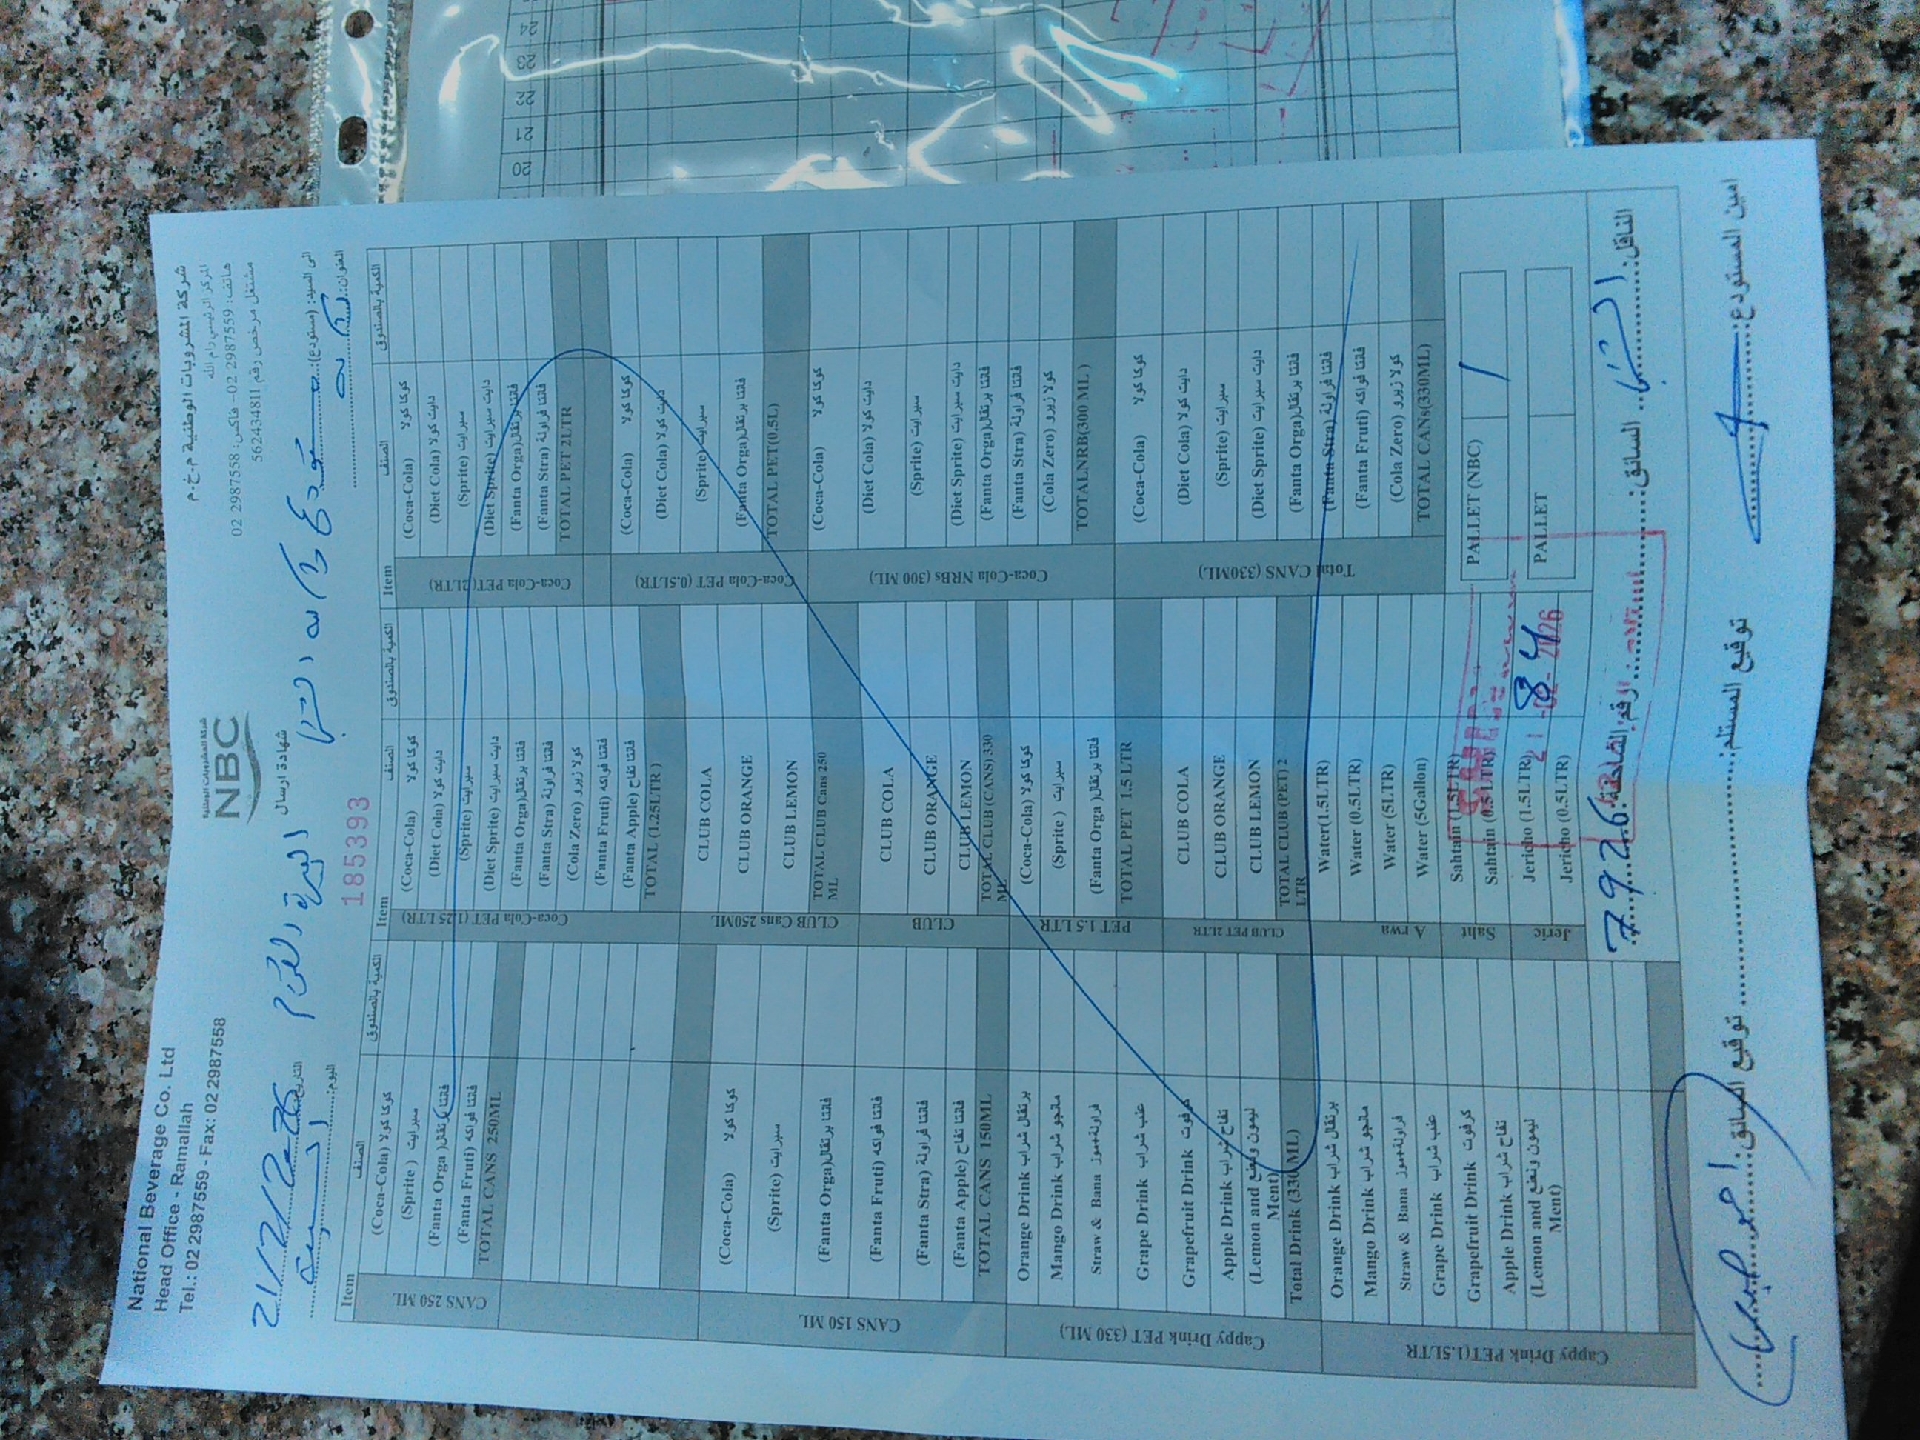 National Beverage Co. Ltd
Head Office - Ramallah
Tel.: 02 2987559 - Fax: 02 2987558
شركة المشروبات الوطنية م.خ.م
المركز الرئيسي رام الله
هاتف: 2987559 02 - فاكس: 2987558 02
مشتغل مرخص رقم 562434811
شركة المشروبات الوطنية
NBC
شهادة ارسال
1185393
التاريخ: 21/2/2026
اليوم: السبت
الى السيد: (مستودع):
العنوان:
Item الصنف الكمية بالصندوق
CANS 250 ML
(Coca-Cola) كوكا كولا
(Sprite) سبرايت
(Fanta Orga) فانتا برتقال
(Fanta Fruti) فانتا فواكه
TOTAL CANS 250ML
CANS 150 ML
(Coca-Cola) كوكا كولا
(Sprite) سبرايت
(Fanta Orga) فانتا برتقال
(Fanta Fruti) فانتا فواكه
(Fanta Stra) فانتا فراولة
(Fanta Apple) فانتا تفاح
TOTAL CANS 150ML
Cappy Drink PET (330 ML)
Orange Drink برتقال شراب
Mango Drink مانجو شراب
Straw & Bana فراولة+موز
Grape Drink عنب شراب
Grapefruit Drink كرفوت
Apple Drink تفاح شراب
(Lemon and Ment) ليمون ونعنع
Total Drink (330 ML)
Cappy Drink PET(1.5LTR
Orange Drink برتقال شراب
Mango Drink مانجو شراب
Straw & Bana فراولة+موز
Grape Drink عنب شراب
Grapefruit Drink كرفوت
Apple Drink تفاح شراب
(Lemon and Ment) ليمون ونعنع
Item الصنف الكمية بالصندوق
Coca-Cola PET (1.25 LTR)
(Coca-Cola) كوكا كولا
(Diet Cola) دايت كولا
(Sprite) سبرايت
(Diet Sprite) دايت سبرايت
(Fanta Orga) فانتا برتقال
(Fanta Stra) فانتا فراولة
(Cola Zero) كولا زيرو
(Fanta Fruti) فانتا فواكه
(Fanta Apple) فانتا تفاح
TOTAL (1.25LTR )
CLUB Cans 250ML
CLUB COLA
CLUB ORANGE
CLUB LEMON
TOTAL CLUB Cans 250 ML
CLUB
CLUB COLA
CLUB ORANGE
CLUB LEMON
TOTAL CLUB (CANS) 330 ML
PET 1.5 LTR
(Coca-Cola) كوكا كولا
(Sprite ) سبرايت
(Fanta Orga ) فانتا برتقال
TOTAL PET 1.5 LTR
CLUB PET 2LTR
CLUB COLA
CLUB ORANGE
CLUB LEMON
TOTAL CLUB (PET) 2 LTR
Arwa
Water(1.5LTR)
Water (0.5LTR)
Water (5LTR)
Water (5Gallon)
Saht
Sahtain (1.5LTR)
Sahtain (0.5 LTR)
Jeric
Jericho (1.5LTR) 84
Jericho (0.5LTR)
Item الصنف الكمية بالصندوق
Coca-Cola PET (2LTR)
(Coca-Cola) كوكا كولا
(Diet Cola) دايت كولا
(Sprite) سبرايت
(Diet Sprite) دايت سبرايت
(Fanta Orga) فانتا برتقال
(Fanta Stra) فانتا فراولة
TOTAL PET 2LTR
Coca-Cola PET (0.5LTR)
(Coca-Cola) كوكا كولا
(Diet Cola) دايت كولا
(Sprite) سبرايت
(Fanta Orga) فانتا برتقال
TOTAL PET(0.5L)
Coca-Cola NRBs (300 ML)
(Coca-Cola) كوكا كولا
(Diet Cola) دايت كولا
(Sprite) سبرايت
(Diet Sprite) دايت سبرايت
(Fanta Orga) فانتا برتقال
(Fanta Stra) فانتا فراولة
(Cola Zero) كولا زيرو
TOTALNRB(300 ML )
Total CANS (330ML)
(Coca-Cola) كوكا كولا
(Diet Cola) دايت كولا
(Sprite) سبرايت
(Diet Sprite) دايت سبرايت
(Fanta Orga) فانتا برتقال
(Fanta Stra) فانتا فراولة
(Fanta Fruti) فانتا فواكه
(Cola Zero) كولا زيرو
TOTAL CANs(330ML)
PALLET (NBC) 1
PALLET
21-02-2026
الناقل: السائق: رقم الشاحنة:
امين المستودع: توقيع المستلم: توقيع السائق:
20
21
22
23
24